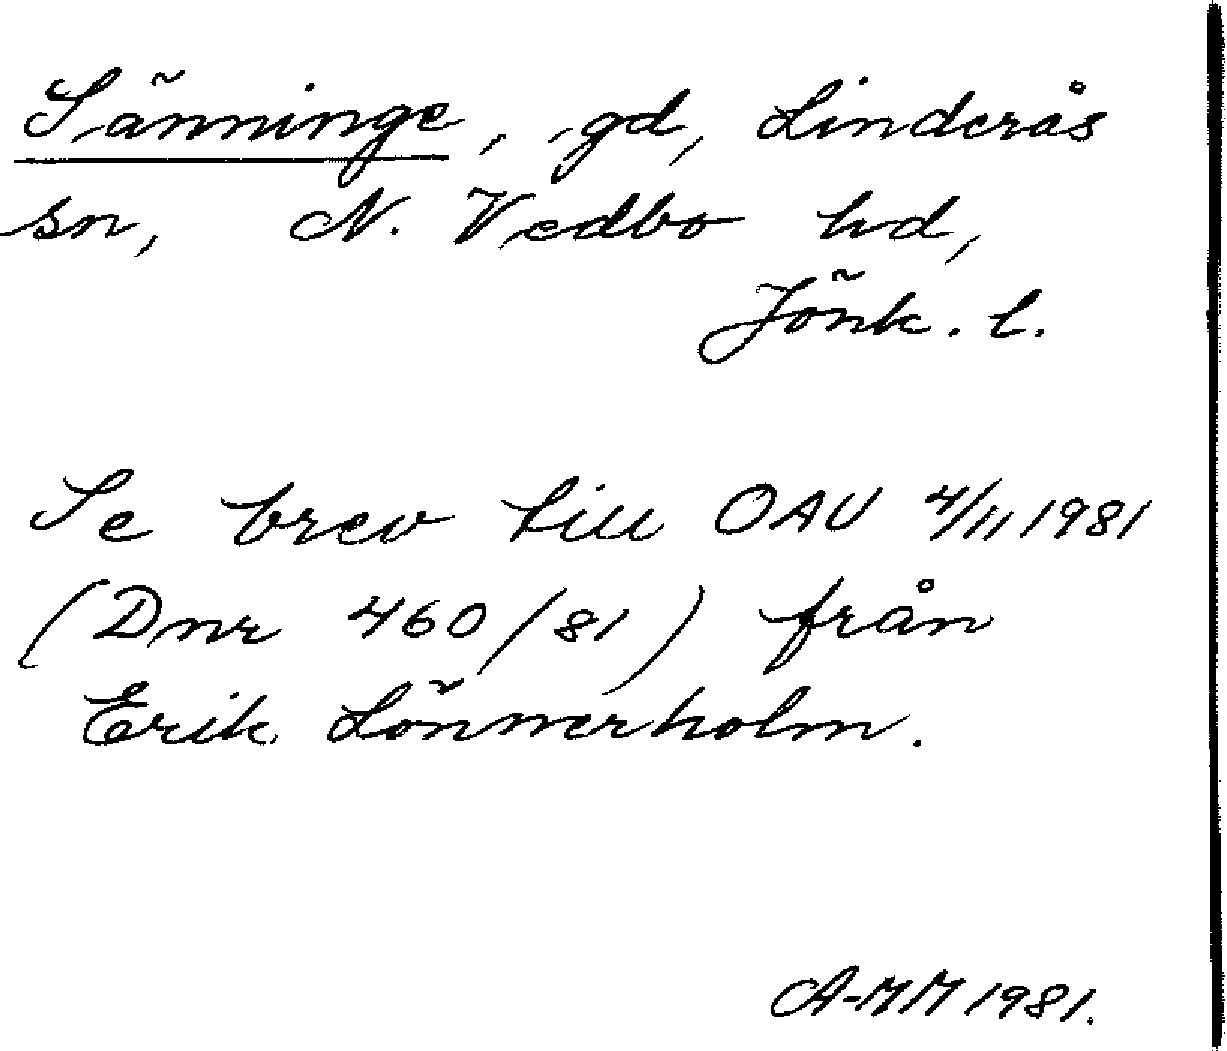 Sänninge, gd, Linderås
sn, N. Vedbo hd,
Jönk. l.
Se brev till OAU 4/11 1981
(Dnr 460/81) från
Erik Lönnerholm.
A-MM 1981.